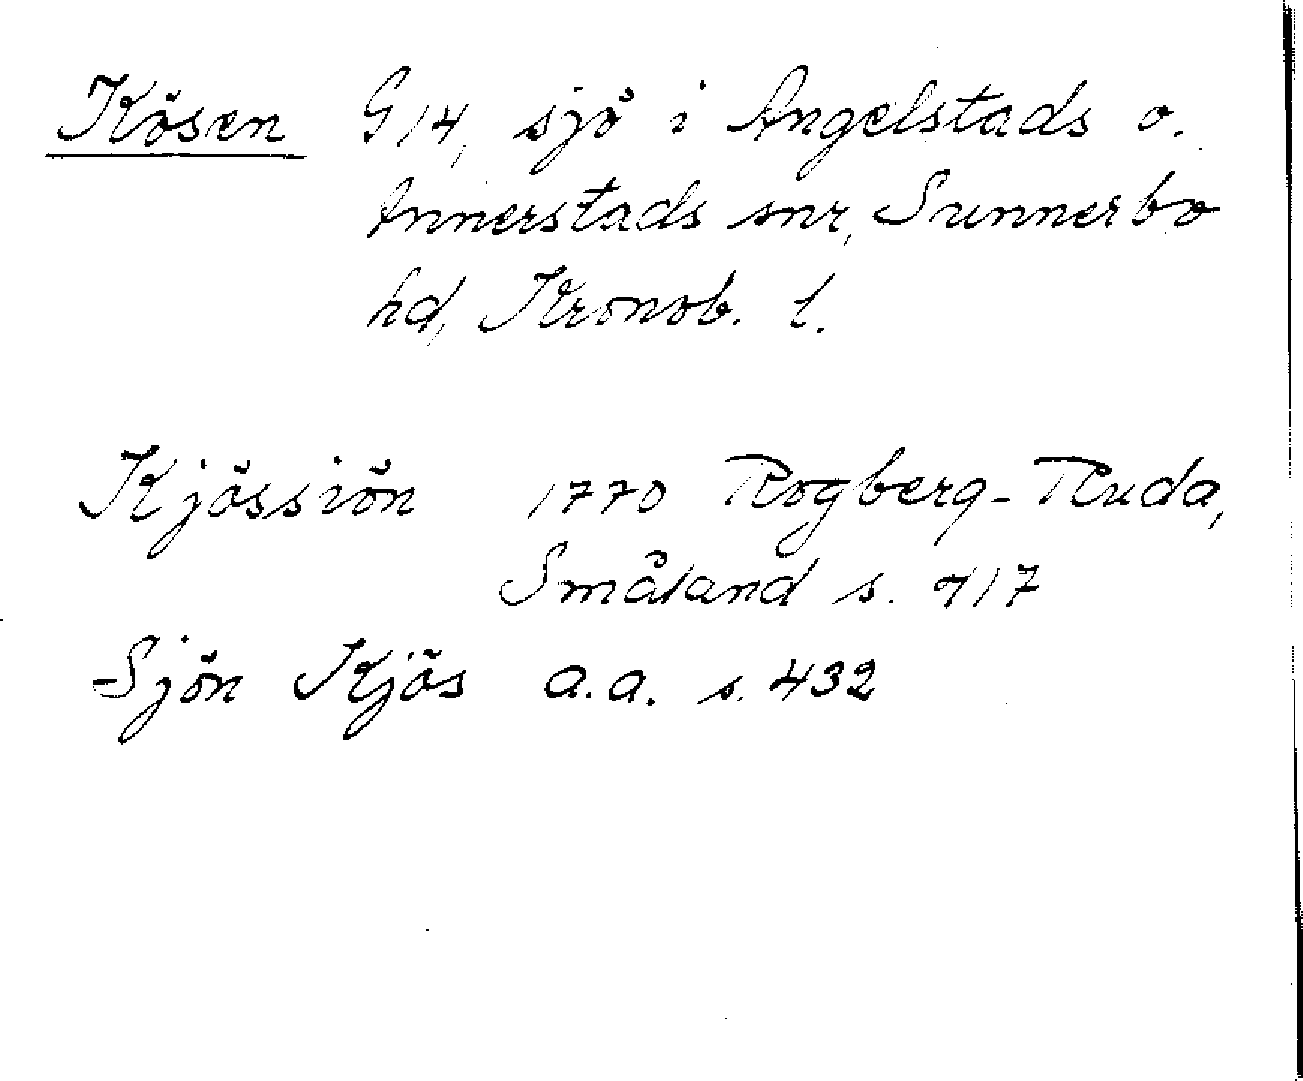 Kösen G14, sjö i Angelstads o.
Annerstads snr, Sunnerbo
hd, Kronob. l.
Kjössiön 1770 Rogberg-Ruda,
Småland s. 417
Sjön Kjös a.a. s. 432